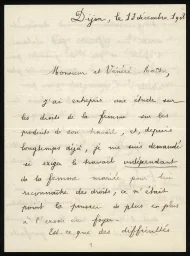 Dijon, le 12 décembre 19
Monsieur et Vénéré Maître,
J'ai entrepris une étude sur
les droits de la femme sur les
produits de son travail, et, depuis
longtemps déjà, je me suis demandé
si exiger le travail indépendant
de la femme mariée pour lui
reconnaître des droits, ce n'était
point la pousser de plus en plus
à l' du foyer.
Est-ce que des difficultés